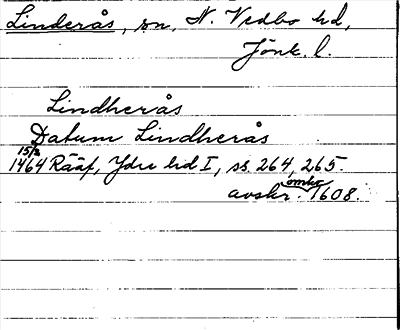 Linderås, sn, N. Vedbo hd,
Jönk. l.
Lindherås
Datum Lindherås
15/2
1464 Rääf, Ydre hd I, ss. 264, 265.
avskr. omkr 1608.